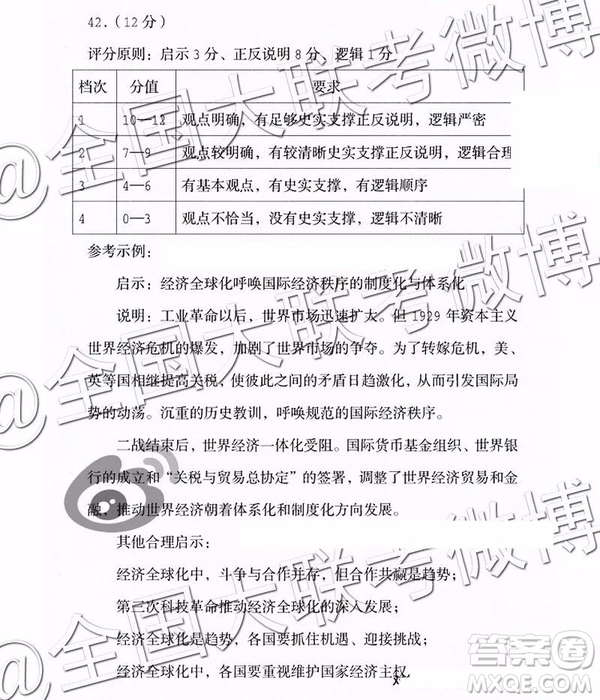 42.（12分）
评分原则：启示3分、正反说明8分、逻辑1分
档次 分值 要求
1 10—12 观点明确，有足够史实支撑正反说明，逻辑严密
2 7—9 观点较明确，有较清晰史实支撑正反说明，逻辑合理
3 4—6 有基本观点，有史实支撑，有逻辑顺序
4 0—3 观点不恰当，没有史实支撑，逻辑不清晰
参考示例：
启示：经济全球化呼唤国际经济秩序的制度化与体系化
说明：工业革命以后，世界市场迅速扩大。但1929年资本主义
世界经济危机的爆发，加剧了世界市场的争夺。为了转嫁危机，美、
英等国相继提高关税、使彼此之间的矛盾日趋激化，从而引发国际局
势的动荡。沉重的历史教训，呼唤规范的国际经济秩序。
二战结束后，世界经济一体化受阻。国际货币基金组织、世界银
行的成立和“关税与贸易总协定”的签署，调整了世界经济贸易和金
融，推动世界经济朝着体系化和制度化方向发展。
其他合理启示：
经济全球化中，斗争与合作并存，但合作共赢是趋势；
第三次科技革命推动经济全球化的深入发展；
经济全球化是趋势，各国要抓住机遇、迎接挑战；
经济全球化中，各国要重视维护国家经济主权
@全国大联考微博
@全国大联考微博
@全国大联考微博
答案圈
MXQE.COM